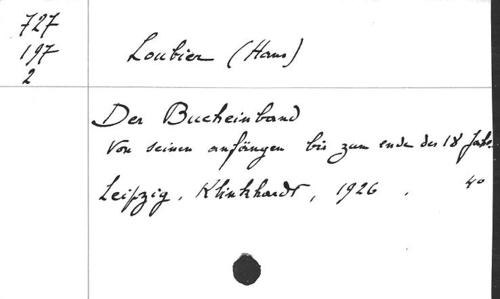 727
197
2
Loubier (Hans)
Der Bucheinband
Von seinen anfängen bis zum ende des 18 Jahr.
Leipzig, Klinkhardt, 1926, 4°